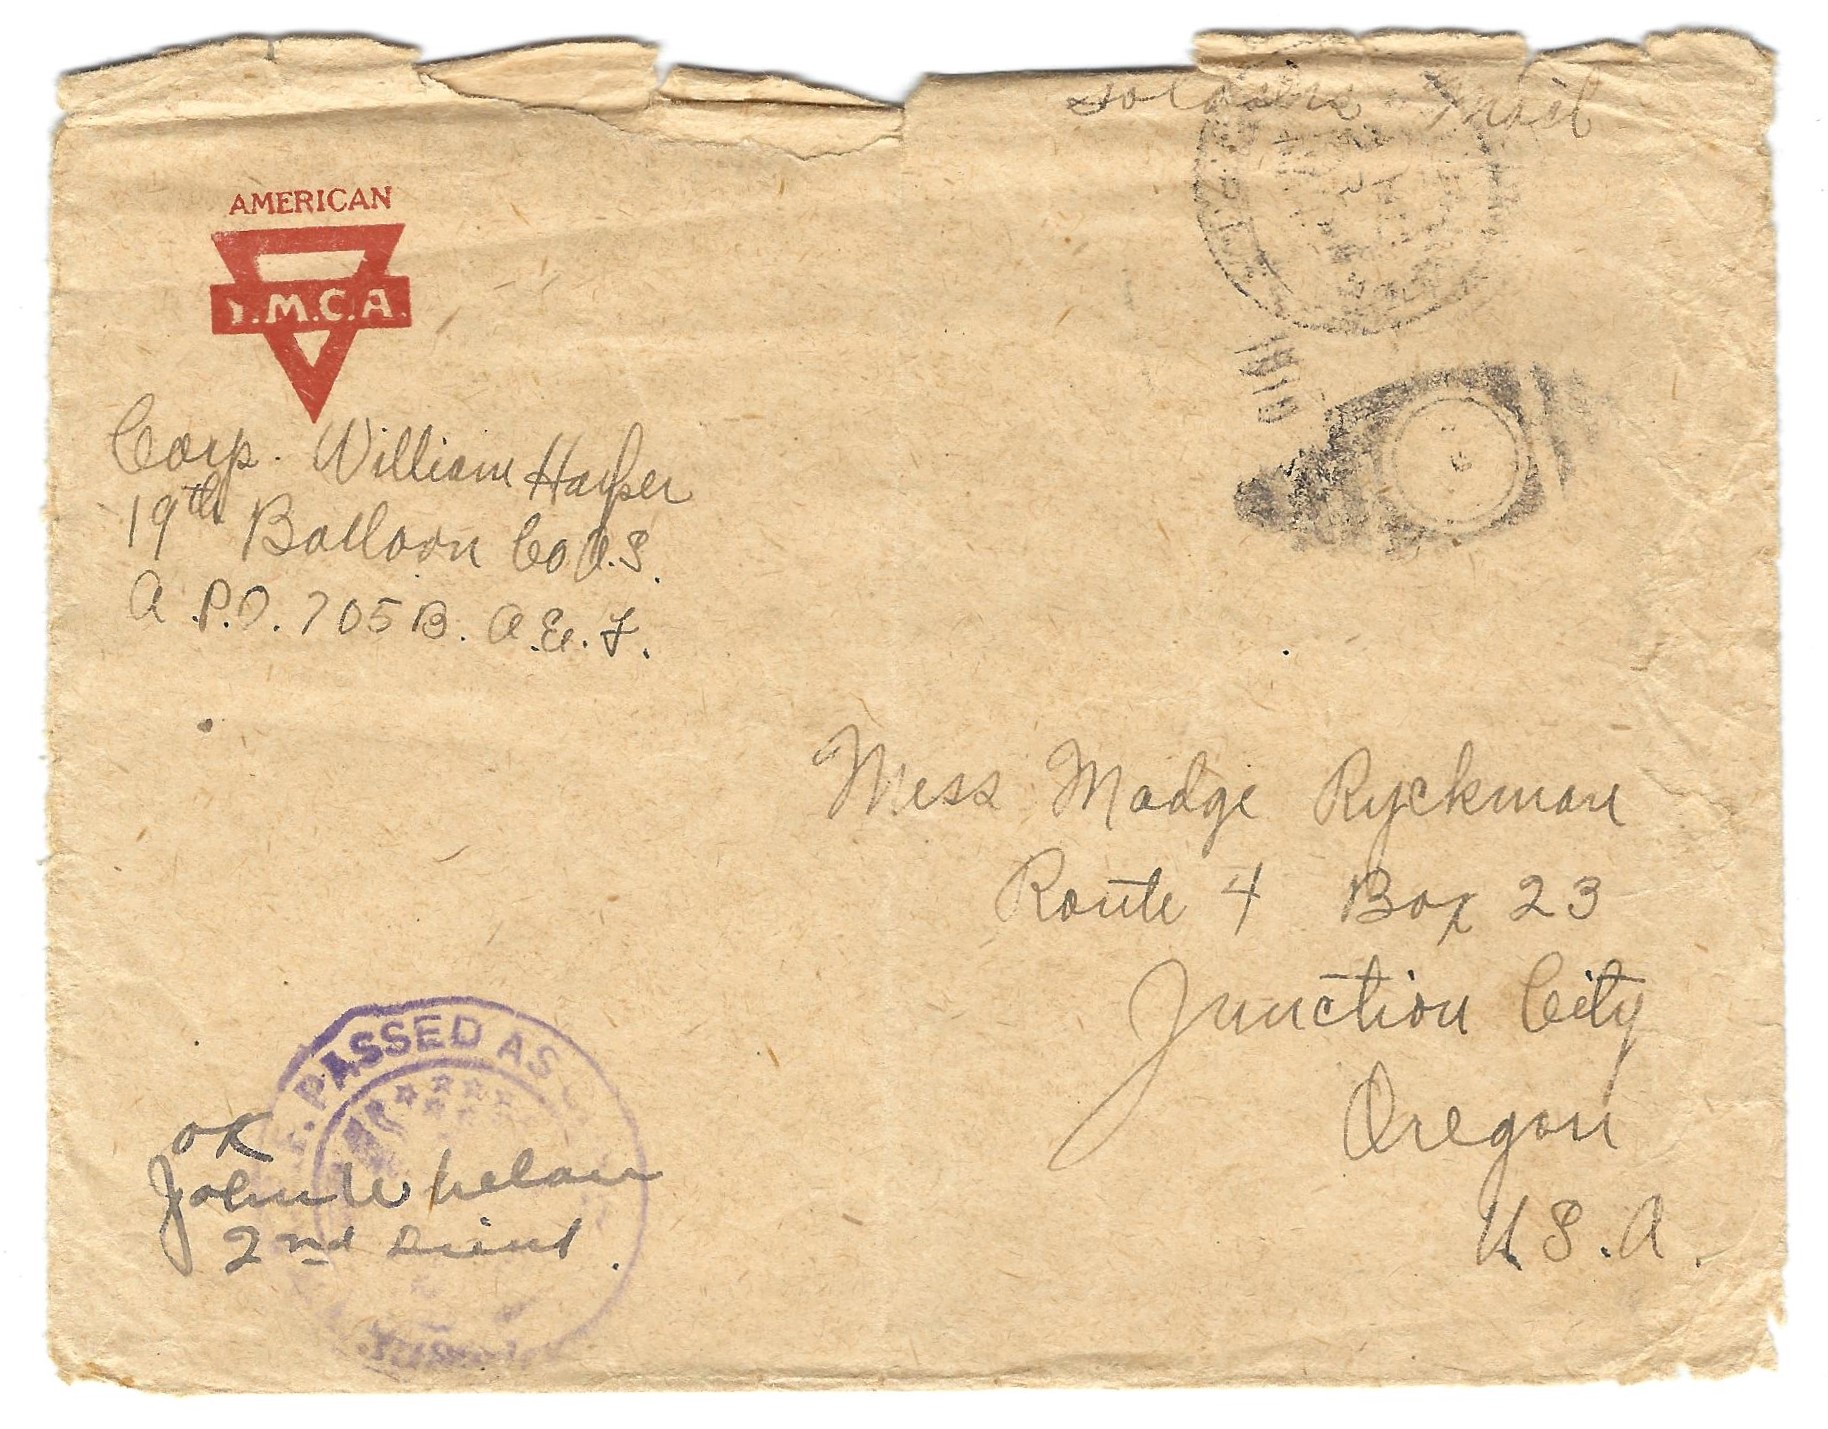 Soldiers Mail
AMERICAN
Y.M.C.A.
1919
Corp. William Harper
19th Balloon Co A.S.
A.P.O. 705 B. A.E.F.
Miss Madge Ryckman
Route 4 Box 23
Junction City
Oregon
U.S.A.
PASSED AS
OK
John Whelan
2nd Lieut.